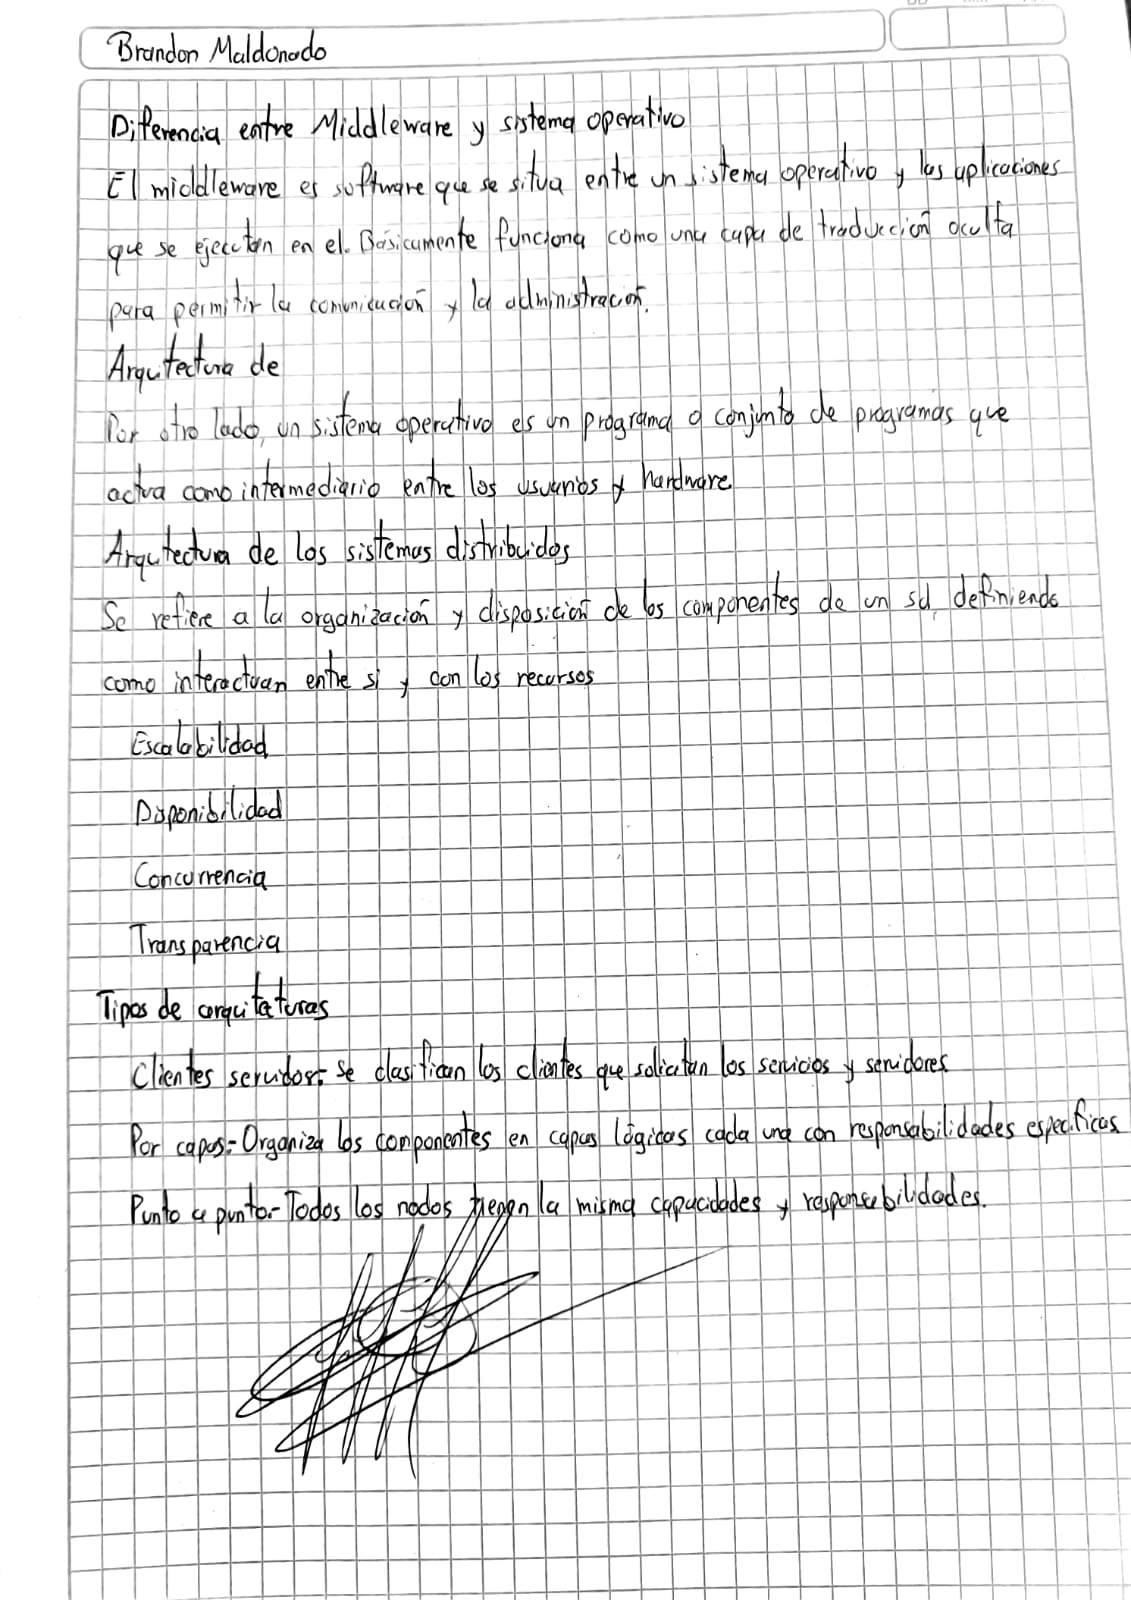 Brandon Maldonado
Diferencia entre Middleware y sistema operativo
El middleware es software que se situa entre un sistema operativo y las aplicaciones
que se ejecutan en el. Básicamente funciona como una capa de traducción oculta
para permitir la comunicación y la administración.
Arquitectura de
Por otro lado, un sistema operativo es un programa o conjunto de programas que
actua como intermediario entre los usuarios y hardware
Arquitectura de los sistemas distribuidos
Se refiere a la organización y disposición de los componentes de un sd, definiendo
como interactuan entre si y con los recursos
Escalabilidad
Disponibilidad
Concurrencia
Transparencia
Tipos de arquitecturas
Clientes servidor- se clasifican los clientes que solicitan los servicios y servidores
Por capas- Organiza los componentes en capas lógicas cada una con responsabilidades especificas
Punto a punto- Todos los nodos tienen la misma capacidades y responsabilidades.